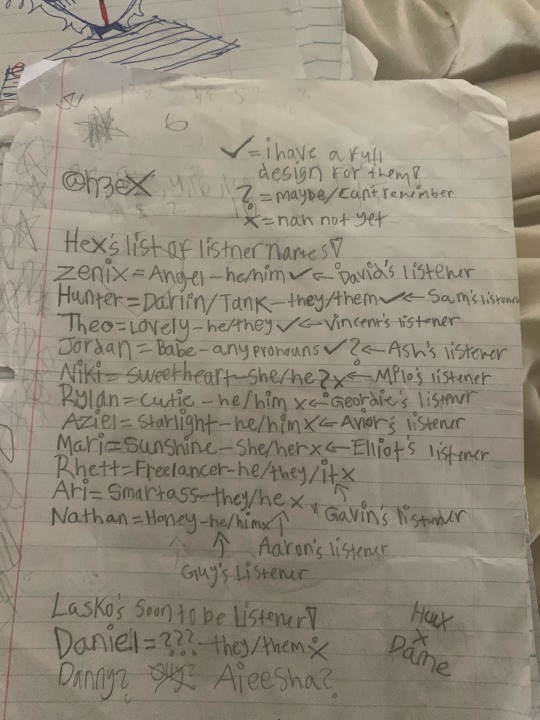 6
✓ = i have a full
design for them!
@h3eX
? = maybe/cant remember
x = nah not yet
Hex's list of listner names!
Zenix = Angel - he/him ✓ ← David's listener
Hunter = Darlin/Tank - they/them ✓ ← Sam's listener
Theo = Lovely - he/they ✓ ← Vincent's listener
Jordan = Babe - any pronouns ✓? ← Ash's listener
Niki = Sweetheart - she/he ?x ← Milo's listener
Rylan = Cutie - he/him x ← Geordie's listener
Aziel = Starlight - he/him x ← Avior's listener
Mari = Sunshine - she/her x ← Elliot's listener
Rhett = Freelancer - he/they/it x
Ari = Smartass - they/he x ↑ Gavin's listener
Nathan = Honey - he/him x ↑
↑ Aaron's listener
Guy's Listener
Lasko's Soon to be Listener!
Daniell = ??? - they/them x
Danny? Aieesha?
Huxx
x
Dame